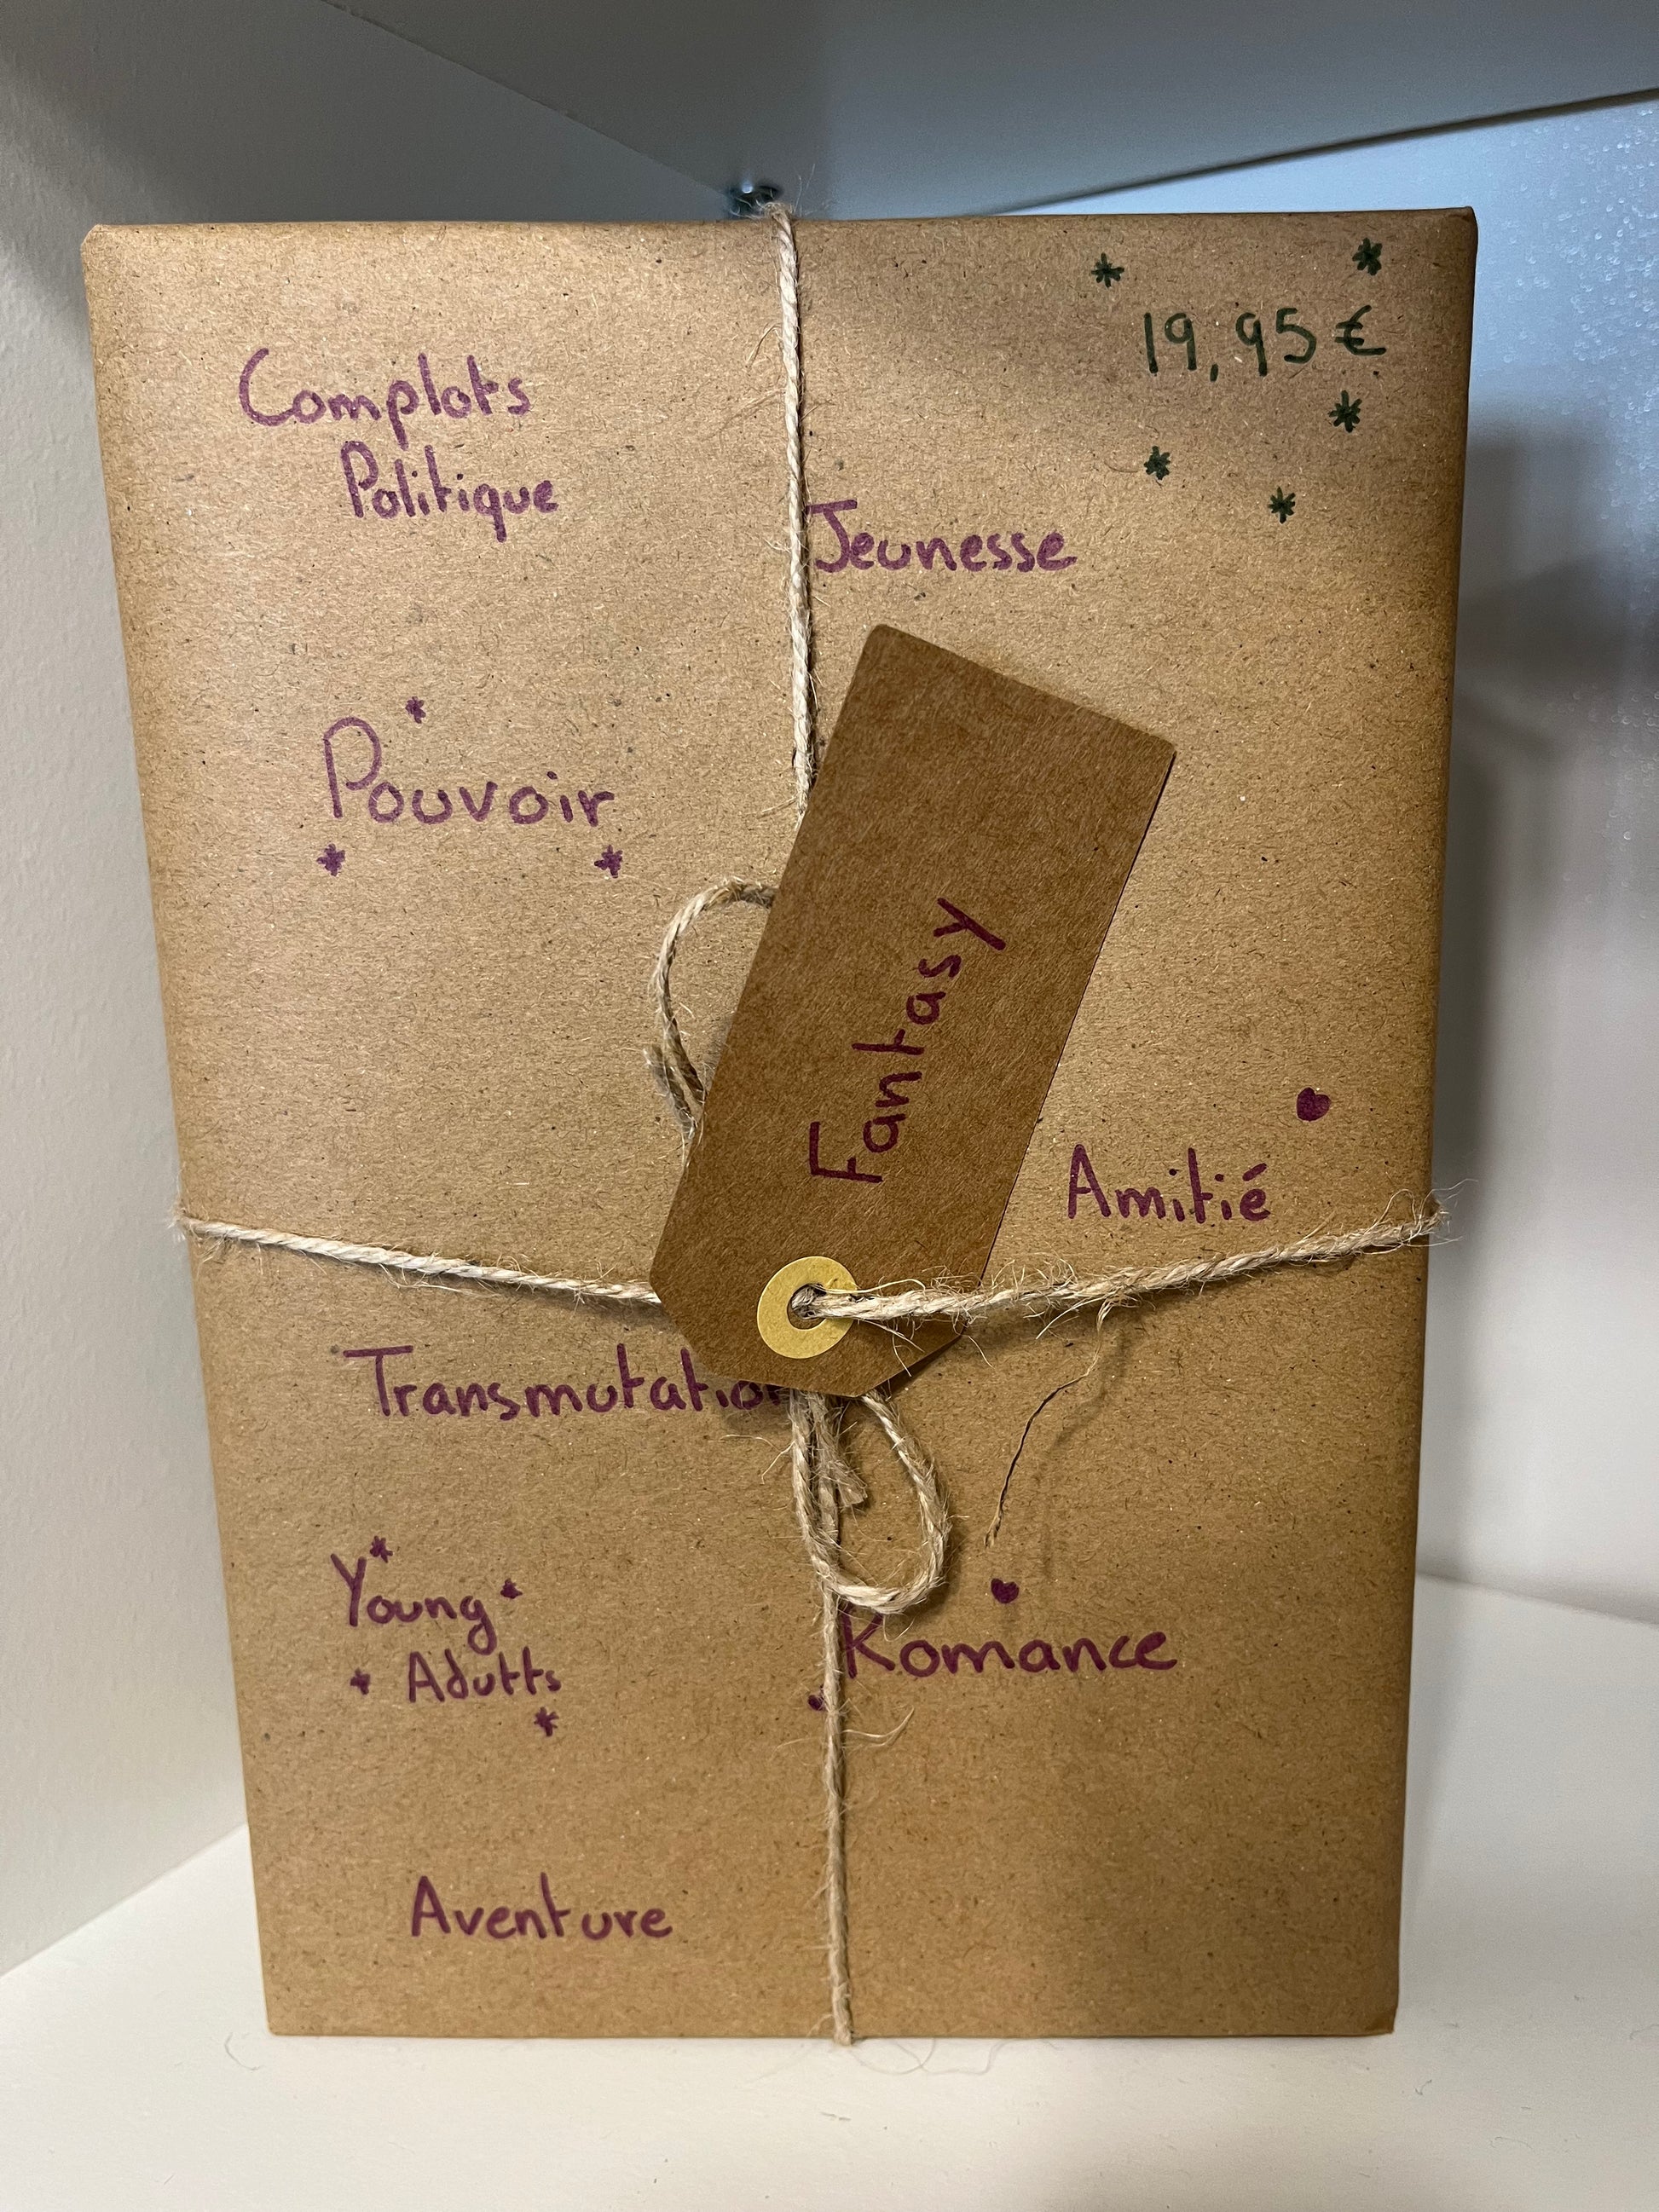 19,95 €
Complots
Politique
Jeunesse
Pouvoir
Fantasy
Amitié
Transmutation
Young
Adults
Romance
Aventure